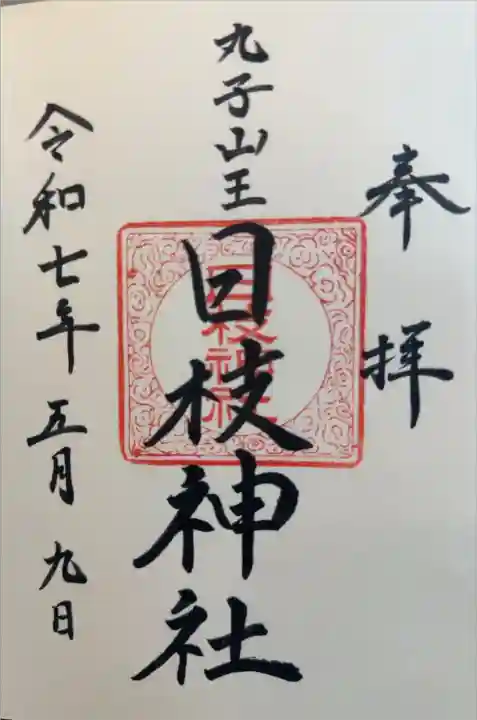 奉拝
丸子山王
日枝神社
日枝神社
令和七年五月九日